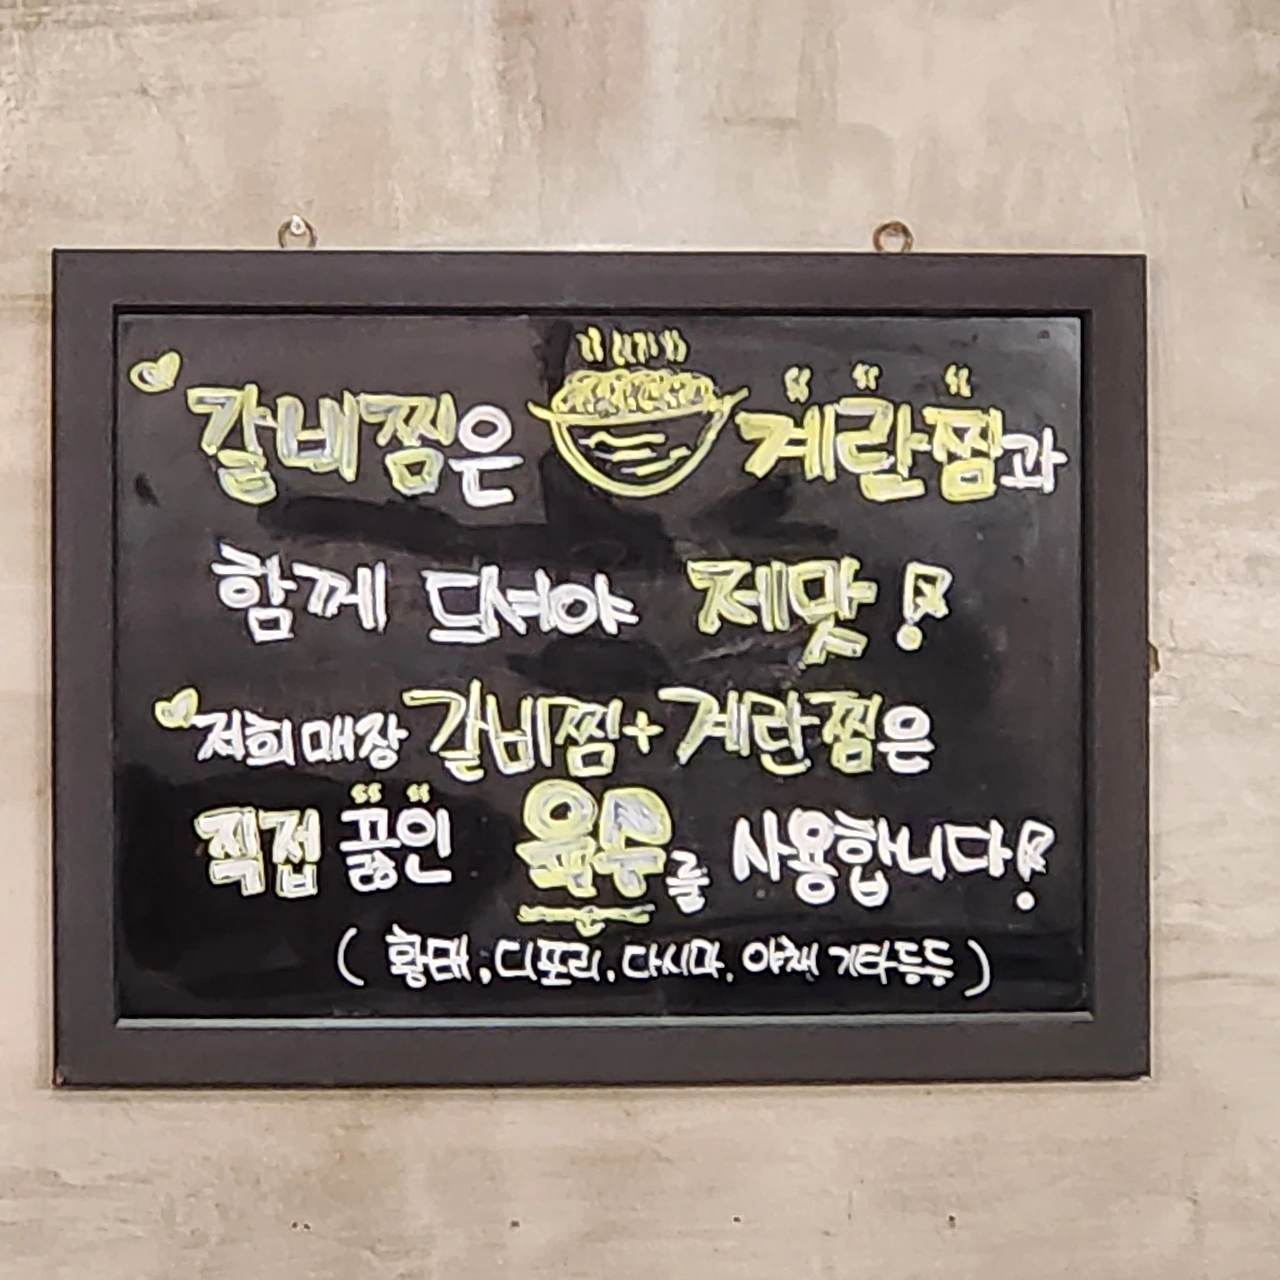 갈비찜은 계란찜과
함께 드셔야 제맛!
저희매장 갈비찜+계란찜은
직접 끓인 육수를 사용합니다!
( 황태, 디포리, 다시마, 야채 기타등등 )